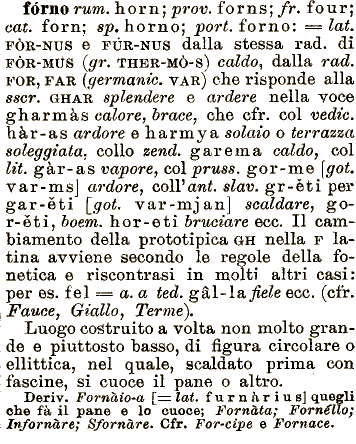 fórno rum. horn; prov. forns; fr. four;
cat. forn; sp. horno; port. forno: = lat.
FÒR-NUS e FÚR-NUS dalla stessa rad. di
FÒR-MUS (gr. THER-MÒ-S) caldo, dalla rad.
FOR, FAR (germanic. VAR) che risponde alla
sscr. GHAR splendere e ardere nella voce
gharmàs calore, brace, che cfr. col vedic.
hàr-as ardore e harmya solaio o terrazza
soleggiata, collo zend. garema caldo, col
lit. gàr-as vapore, col pruss. gor-me [got.
var-ms] ardore, coll'ant. slav. gr-ěti per
gar-ěti [got. var-mjan] scaldare, go-
r-ěti, boem. hor-eti bruciare ecc. Il cam-
biamento della prototipica GH nella F la-
tina avviene secondo le regole della fo-
netica e riscontrasi in molti altri casi:
per es. fel = a. a ted. gâl-la fiele ecc. (cfr.
Fauce, Giallo, Terme).
Luogo costruito a volta non molto gran-
de e piuttosto basso, di figura circolare o
ellittica, nel quale, scaldato prima con
fascine, si cuoce il pane o altro.
Deriv. Fornàio-a [= lat. furnàrius] quegli
che fà il pane e lo cuoce; Fornàta; Fornéllo;
Infornàre; Sfornàre. Cfr. For-cipe e Fornace.